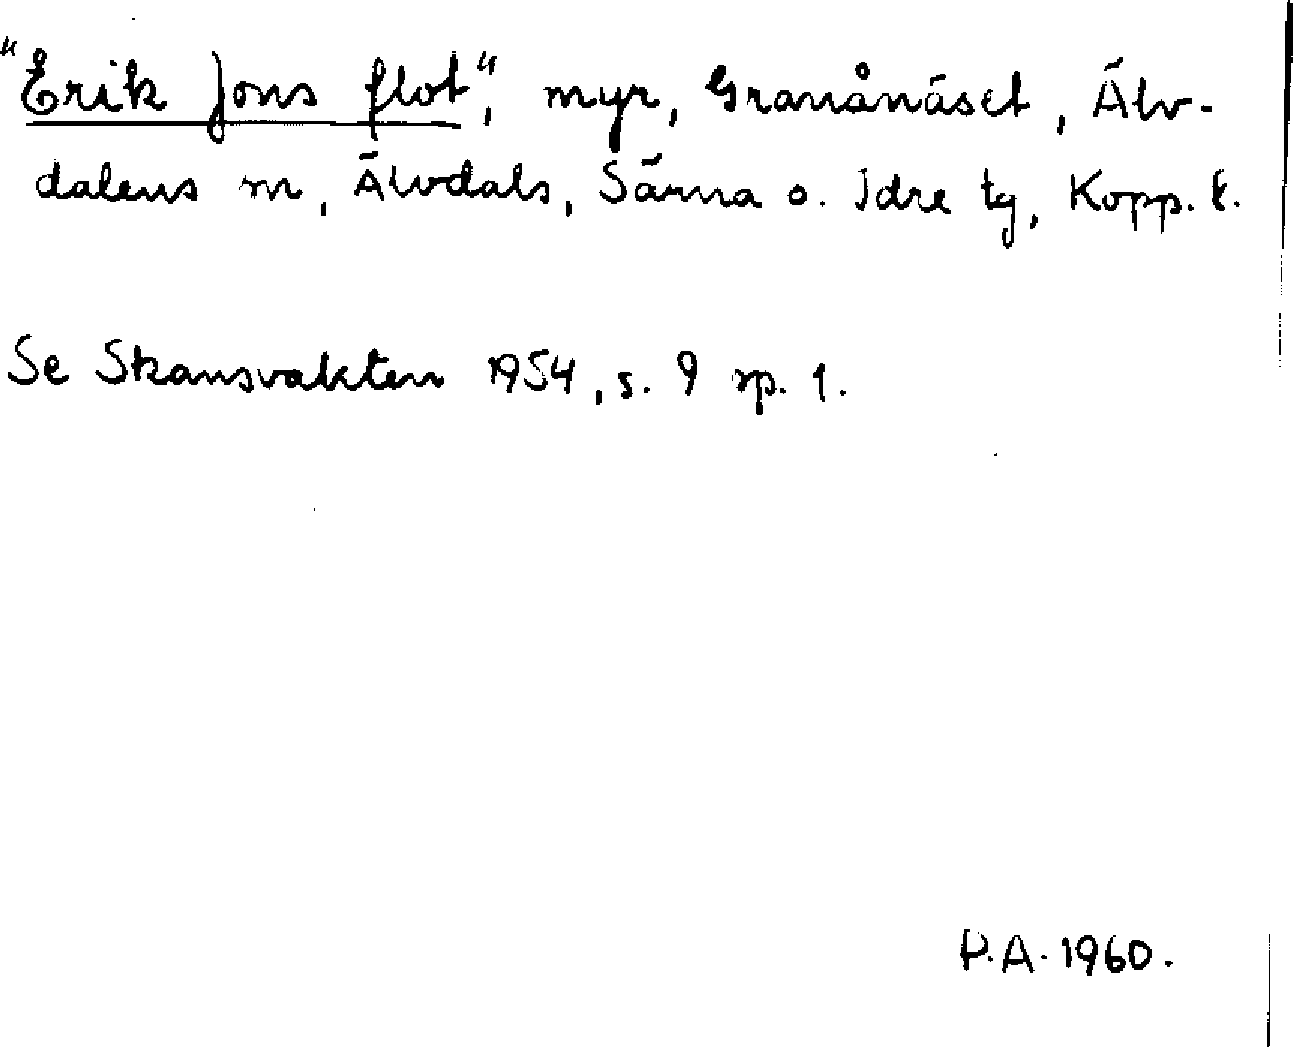 "Erik Jons flot", myr, Granånäset, Älv-
dalens m, Älvdals, Särna o. Idre tg, Kopp. l.
Se Skansvakten 1954, s. 9 sp. 1.
P.A. 1960.